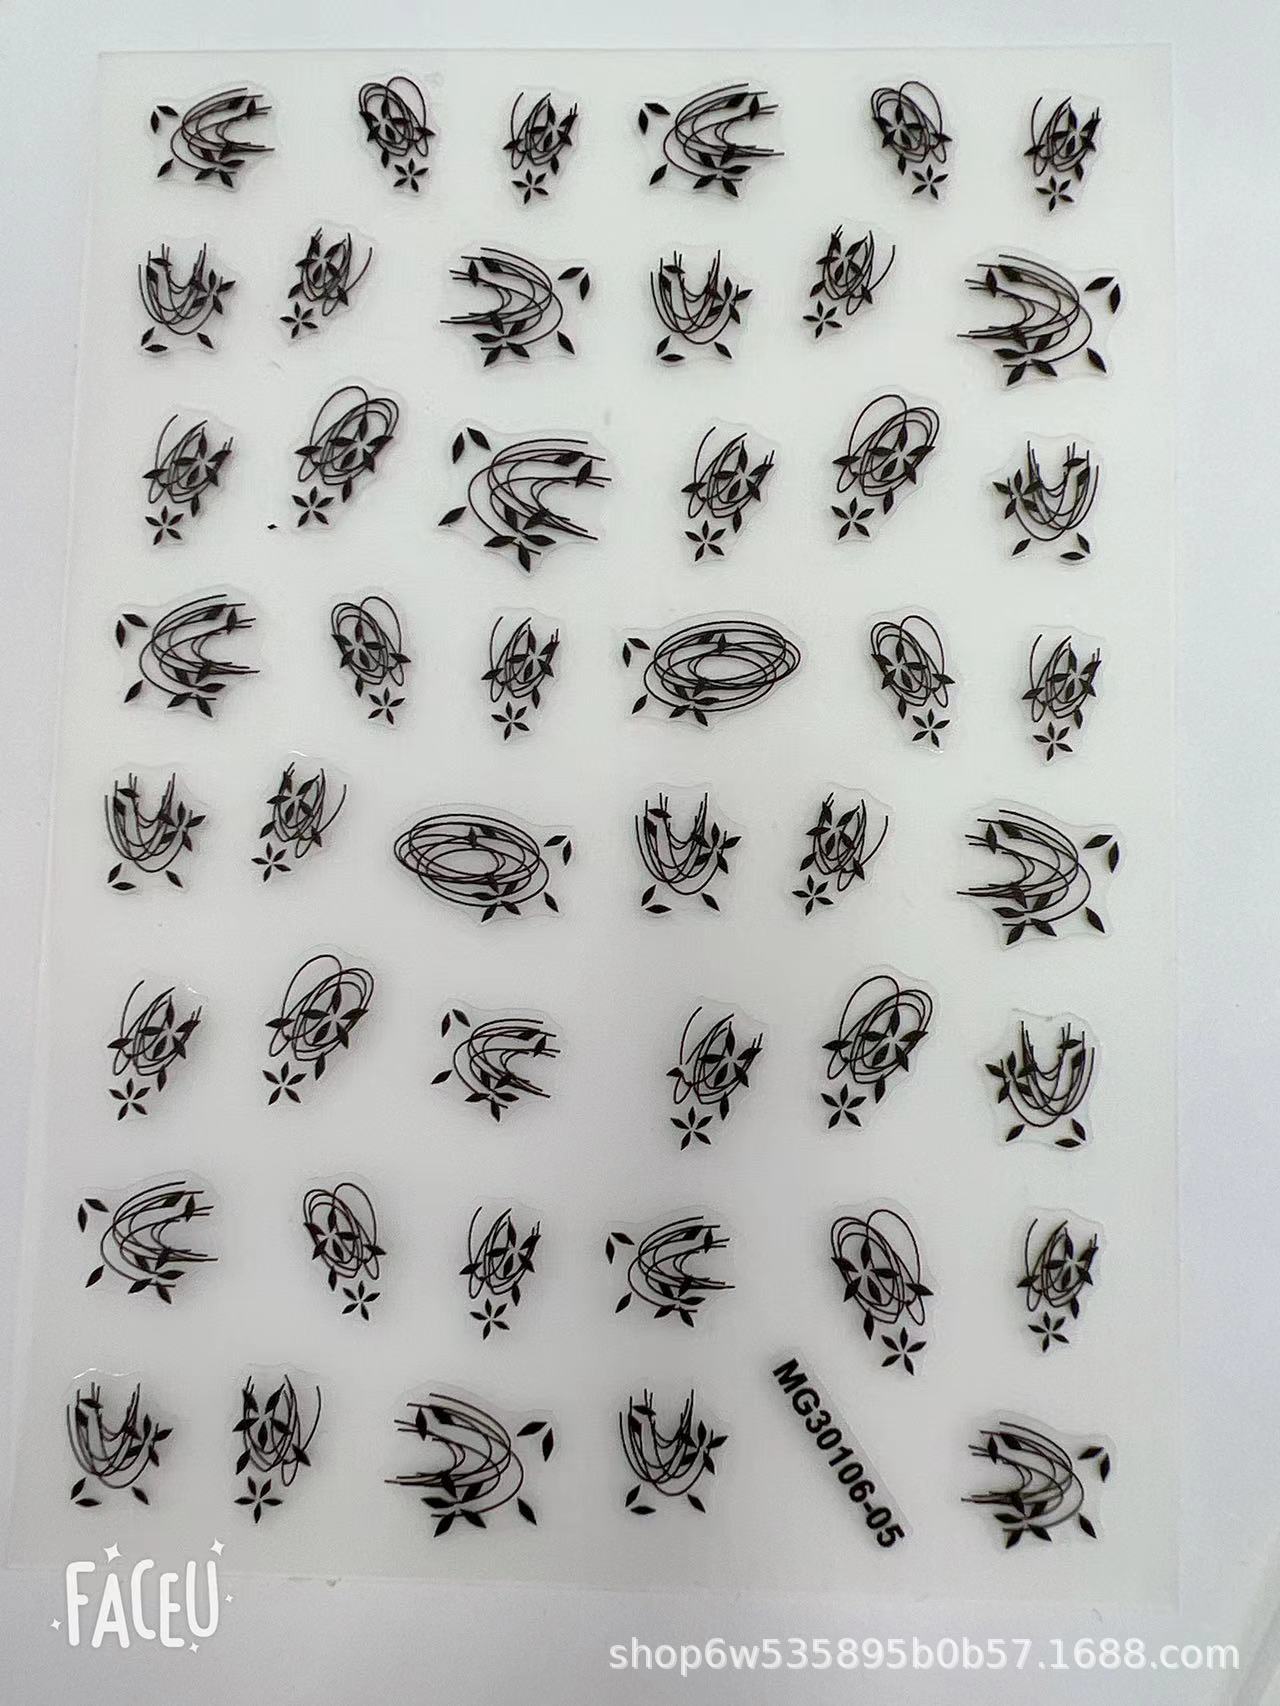 MG30106-05
FACEU
shop6w535895b0b57.1688.com